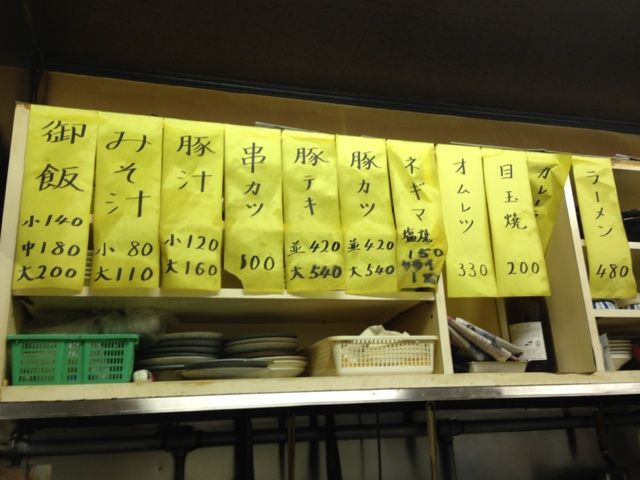 御飯
小 140
中 180
大 200
みそ汁
小 80
大 110
豚汁
小 120
大 160
串カツ
100
豚テキ
並 420
大 540
豚カツ
並 420
大 540
ネギマ
塩焼
150
オムレツ
330
目玉焼
200
ラーメン
480